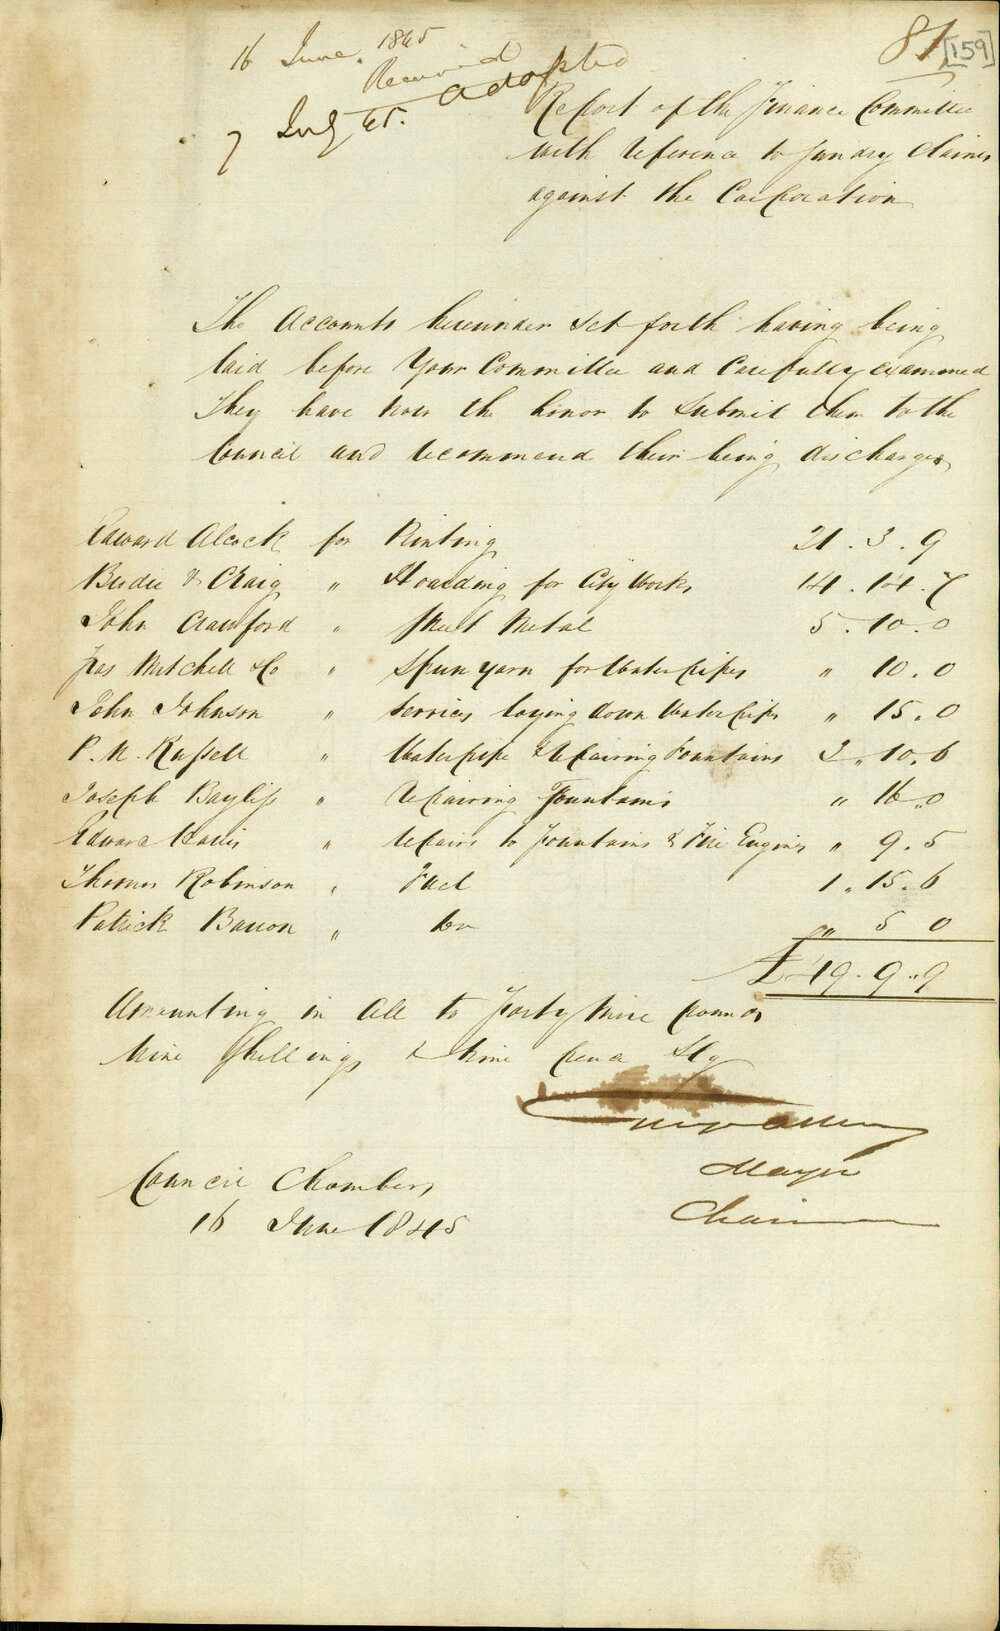 16 June. 1845
Received
7 July 45. adopted
81
159
Report of the Finance Committee
with reference to sundry Claims
against the Corporation
The Accounts hereinunder set forth having being
laid before Your Committee and Carefully examined
They have now the honor to Submit them to the
Council and recommend their being discharged
Edward Alcock for Printing 21 . 3 . 9
Birdee & Craig " Hoarding for City Works 14 . 14 . 7
John Crawford " Street Metal 5 . 10 . 0
Jas Mitchell & Co " Spun yarn for Water pipes " 10 . 0
John Johnson " Services laying down Water pipes " 15 . 0
P. N. Russell " Water pipe & repairing Fountains 3 . 10 . 6
Joseph Bayliss " repairing Fountains " 16 . 0
Edward " repairs to Fountains & Fire Engines " 9 . 5
Thomas Robinson " Fuel 1 . 15 . 6
Patrick Barron " Do " 5 0
£49 . 9 . 9
Amounting in all to Forty nine pounds
Nine Shillings & Nine pence Stg
Mayor
Chairman
Council Chambers
16 June 1845